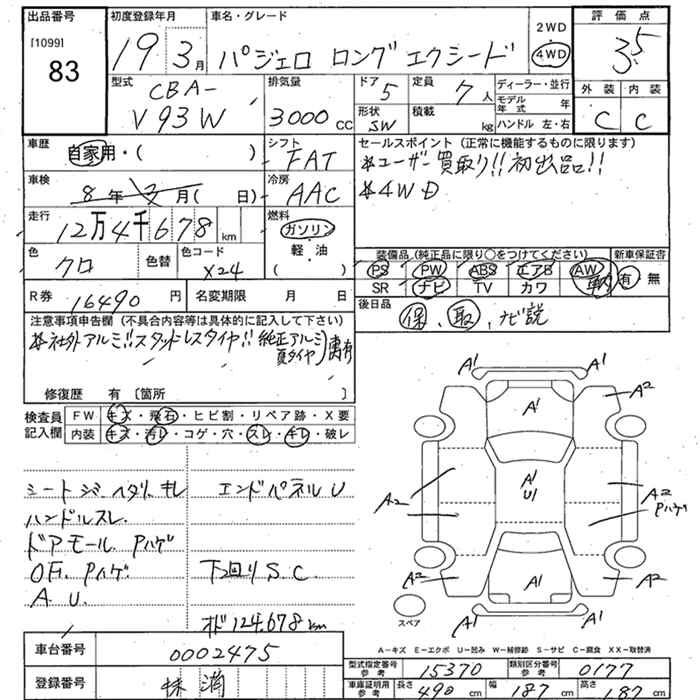 出品番号 初度登録年月 車名・グレード 2WD 評価点
[1099] 19 3月 パジェロ ロング エクシード 4WD 3.5
83
型式 排気量 ドア 5 定員 7人 ディーラー・並行 外装 内装
CBA- モデル年式 年
V93W 3000cc 形状 SW 積載 kg ハンドル 左・右 C C
車歴 自家用・( ) シフト FAT セールスポイント (正常に機能するものに限ります)
*ユーザー買取り!!初出品!!
車検 8年 3月 ( 日) 冷房 AAC *4WD
走行 12万4千678km 燃料 ガソリン
軽・油
( )
色 クロ 色替 色コード X24
装備品 (純正品に限り○をつけてください) 新車保証書
PS PW ABS エアB AW 有・無
SR ナビ TV カワ
R券 16490円 名変期限 月 日 後日品 保、取、ナビ説
注意事項申告欄 (不具合内容等は具体的に記入して下さい)
*社外アルミ!!スタッドレスタイヤ!!純正アルミ
夏タイヤ
修復歴 有 [箇所 ]
検査員 FW キズ・飛石・ヒビ割・リペア跡・X要
記入欄 内装 キズ・汚レ・コゲ・穴・スレ・キレ・破レ
シートシワ.ヘタリ.キレ エンドパネルU
ハンドルスレ.
ドアモール Pハゲ
OF. Pハゲ 下回りS.C.
A.U.
オド124.678km
A1
A1 A1 A2
A1
U1
A2 A2
Pハゲ
A2 A1 A2
A1 A1
スペア
A-キズ E-エクボ U-凹み W-補修跡 S-サビ C-腐食 XX-取替済
車台番号 0002475
型式指定番号 参考 15370 類別区分番号 参考 0177
登録番号 抹消
車庫証明用 参考 長さ 490cm 幅 187cm 高さ 187cm